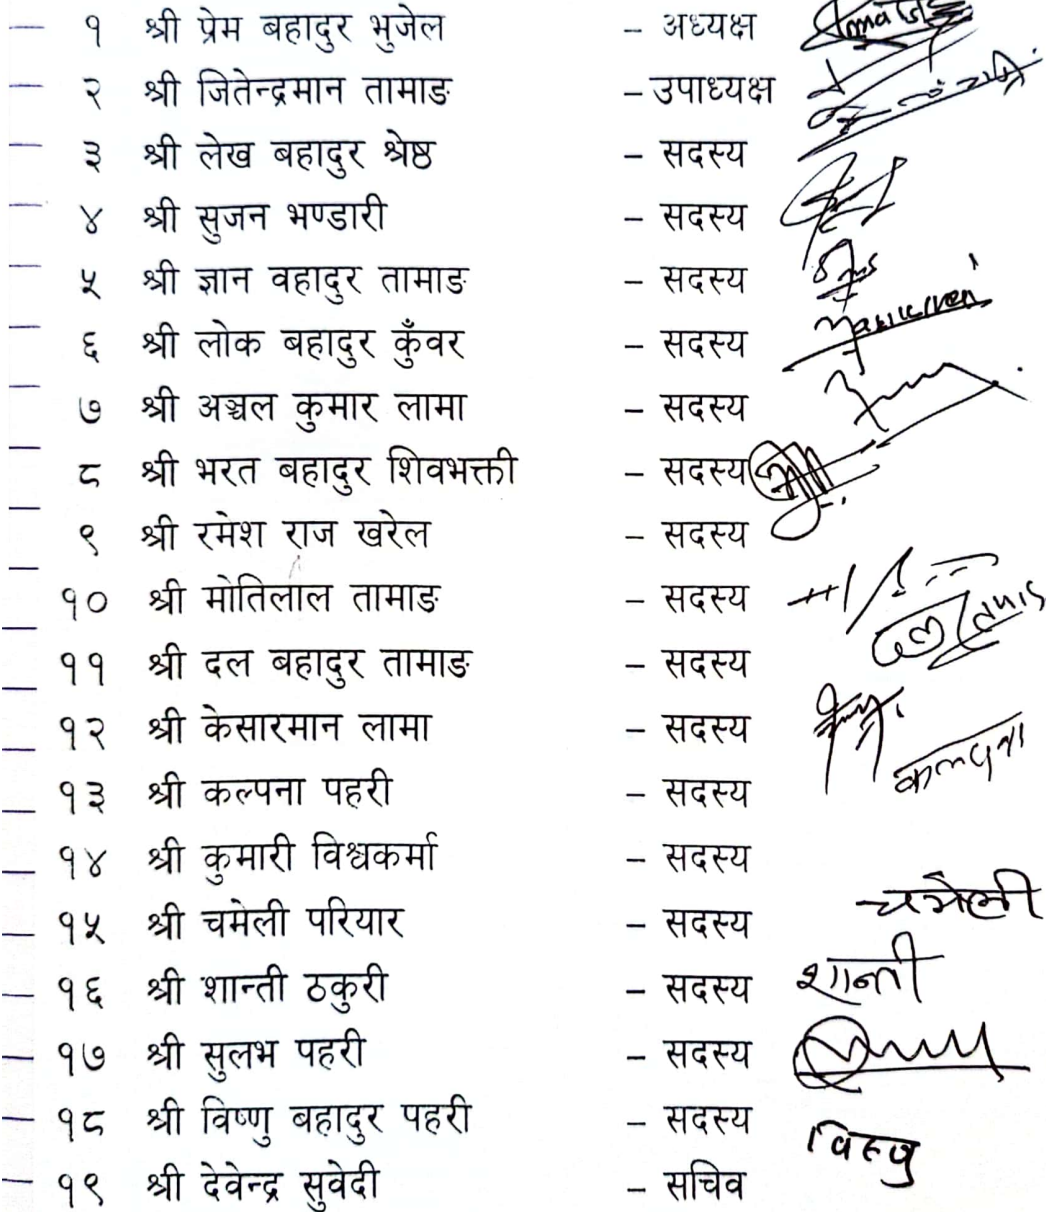 १ श्री प्रेम बहादुर भुजेल - अध्यक्ष
२ श्री जितेन्द्रमान तामाङ - उपाध्यक्ष
३ श्री लेख बहादुर श्रेष्ठ - सदस्य
४ श्री सुजन भण्डारी - सदस्य
५ श्री ज्ञान वहादुर तामाङ - सदस्य
६ श्री लोक बहादुर कुँवर - सदस्य
७ श्री अञ्चल कुमार लामा - सदस्य
८ श्री भरत बहादुर शिवभक्ती - सदस्य
९ श्री रमेश राज खरेल - सदस्य
१० श्री मोतिलाल तामाङ - सदस्य
११ श्री दल बहादुर तामाङ - सदस्य
१२ श्री केसारमान लामा - सदस्य
१३ श्री कल्पना पहरी - सदस्य कल्पना
१४ श्री कुमारी विश्वकर्मा - सदस्य
१५ श्री चमेली परियार - सदस्य चमेली
१६ श्री शान्ती ठकुरी - सदस्य शान्ती
१७ श्री सुलभ पहरी - सदस्य
१८ श्री विष्णु बहादुर पहरी - सदस्य विष्णु
१९ श्री देवेन्द्र सुवेदी - सचिव